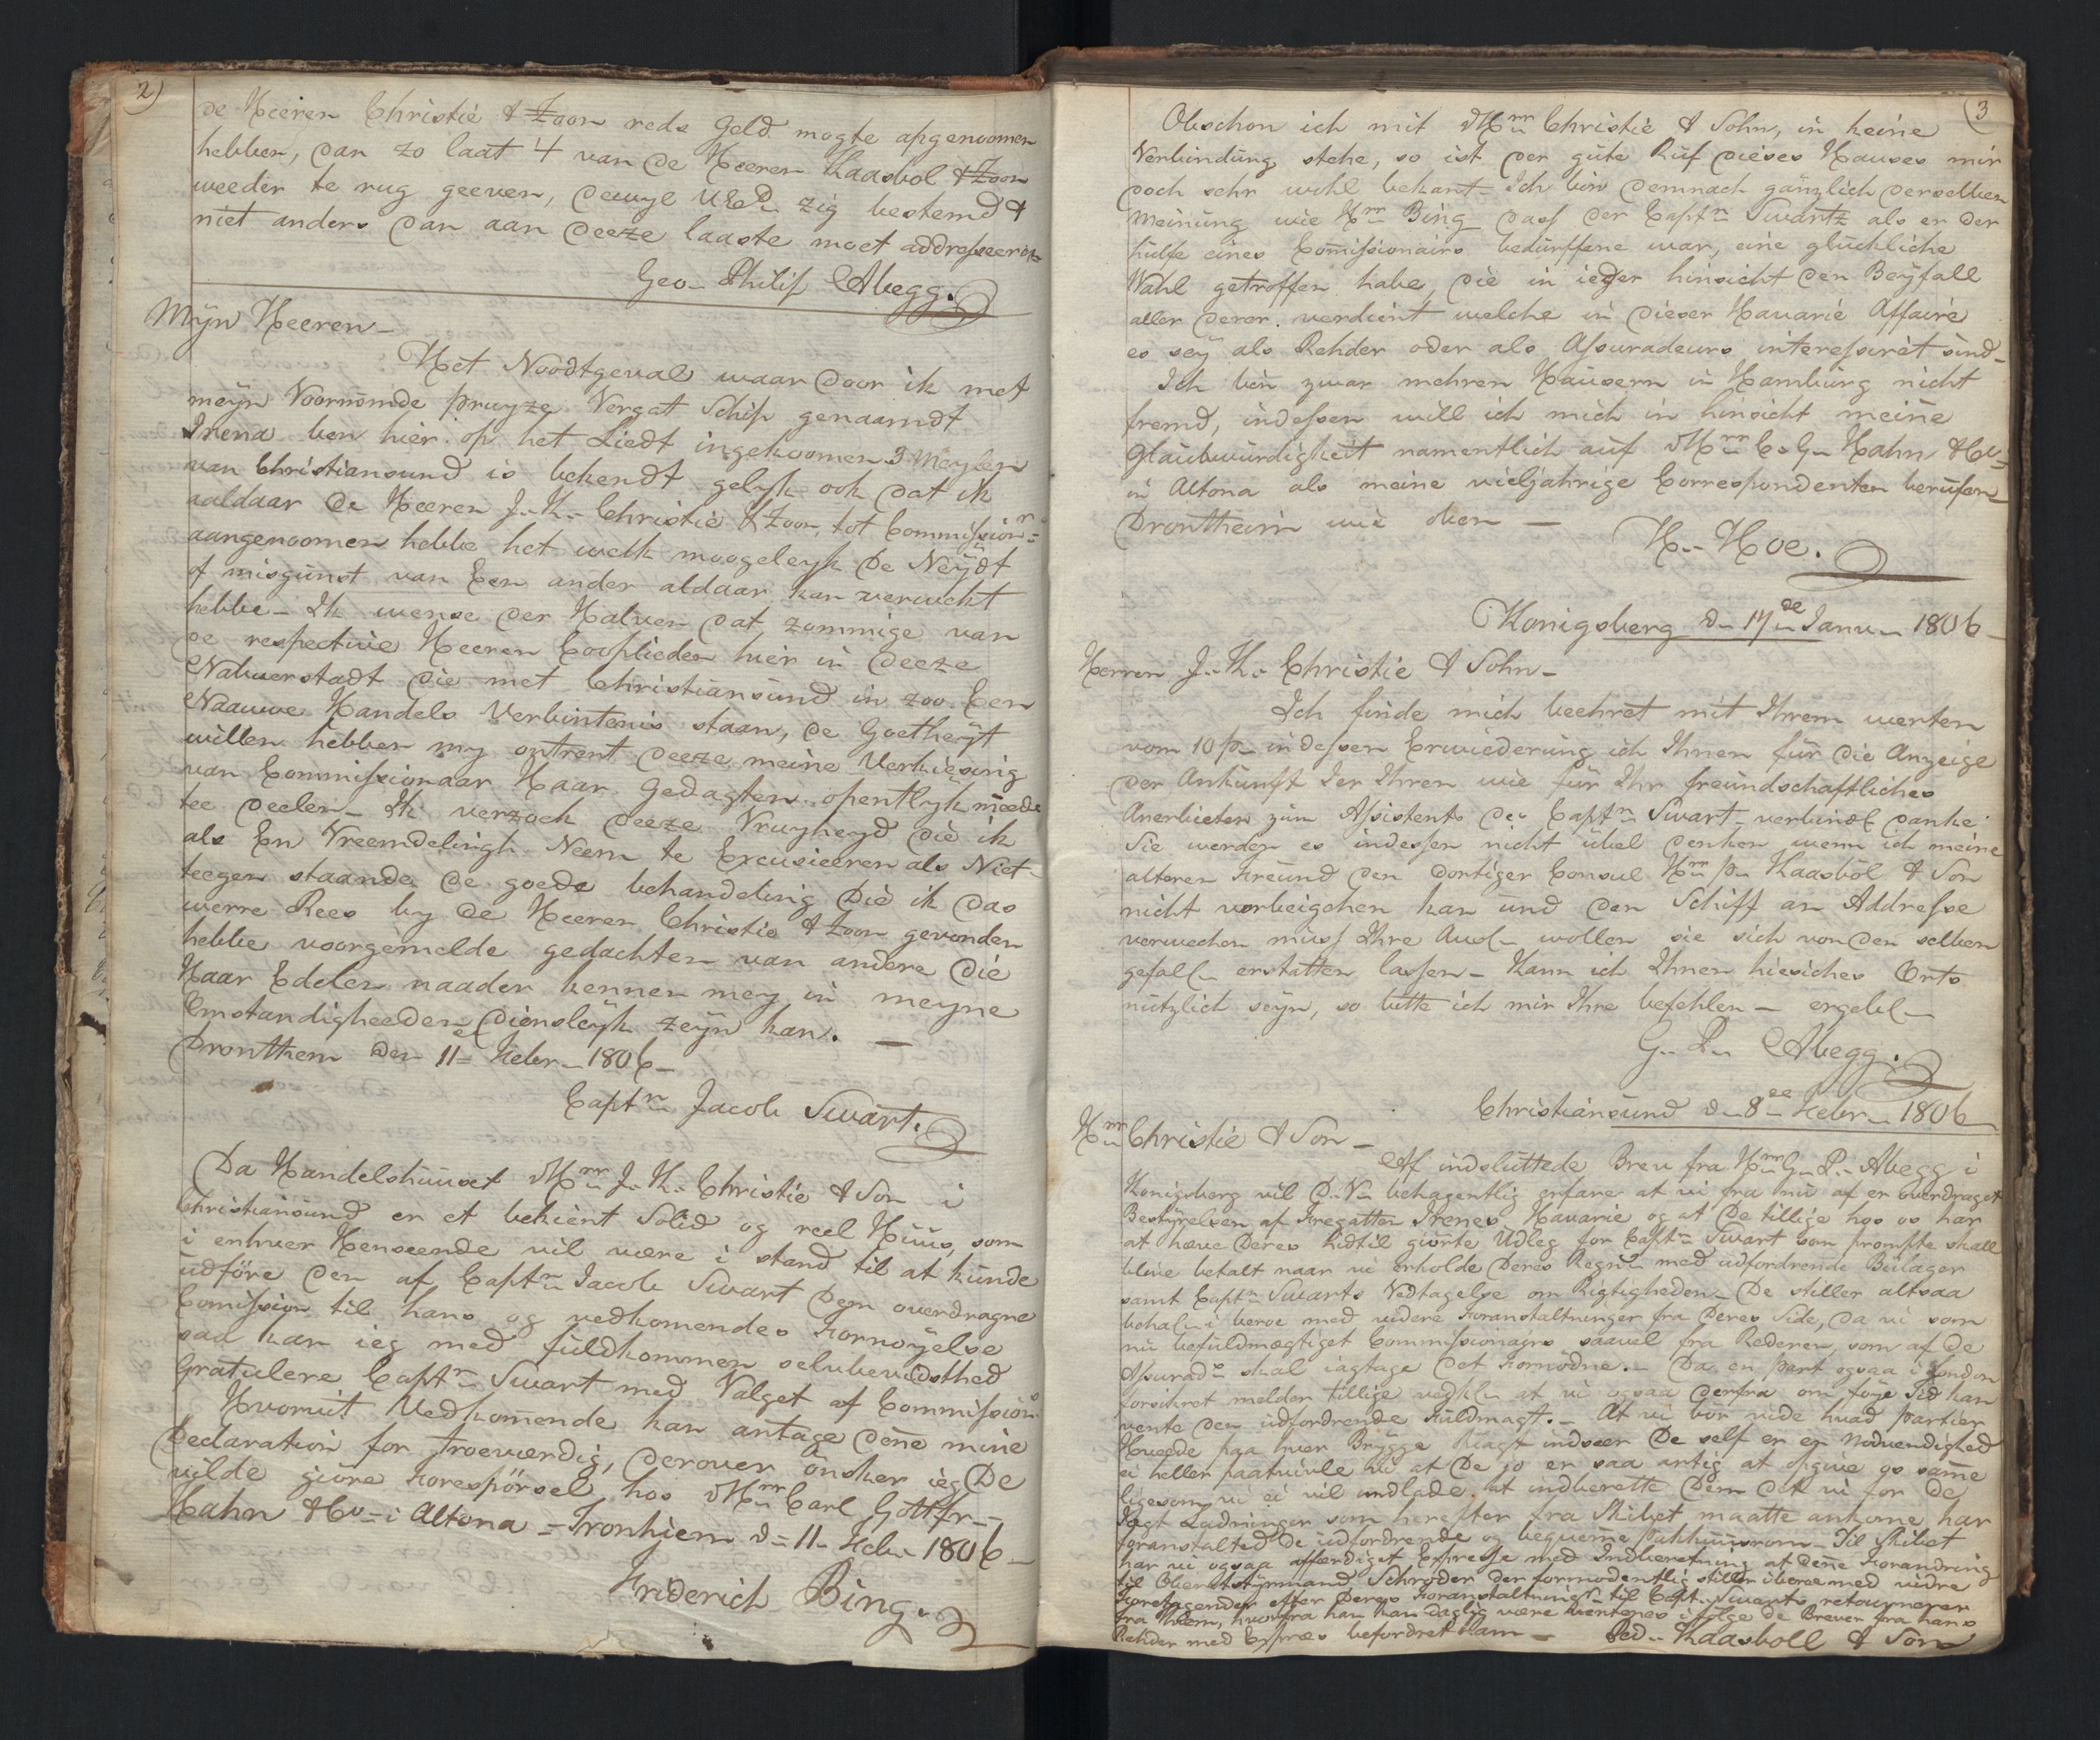 2)
de Heeren Christie & Zoon reds geld mogte apgenoomen
hebben, dan zo laat 't van de Heeren Kaasbol & Zoon
weeder te rug geeven, dewyl UEd zig bestemd &
niet anders dan aan deeze laaste moet addresseeren
Geo Philip Abegg.
Mÿn Heeren
Het Noodtgeval waar door ik met
meÿn Voornomde pruyze Vergat Schip genaamdt
Irena ben hier op het Liedt ingekoomen 3 Meylen
van Christiansund is bekendt gelyk ook dat ik
aaldaar de Heeren J. K. Christie & Zoon, tot Commission
aangenoomen hebbe het welk moogeleyk De Neÿdt
of misgunst van Een ander aldaar kan verwekt
hebbe - Ik wense der Halven dat zommige van
de respective Heeren Cooplieden hier in deeze
Nabuerstadt die met Christiansund in zoo Een
Naauwe Handels Verbintenis staan, de Goetheÿt
willen hebben my ontrent deeze meine Verkiesing
van Commissionaar Haar Gedagten opentlyk meede
tee deelen - Ik verzoek deeze Vruyheyd die ik
als En Vreemdelingh Neem te Excusieeren als Niet
teegen staande de goede behandeling Die ik das
werre Rees by De Heeren Christie & Zoon gevonden
hebbe voorgemelde gedachten van andere die
Haar Edelen naader kennen mey in meyne
Emstandigheeden dionsleyk zeÿn kan. —
Dronthem den 11 Febr 1806
Captn Jacob Swart.
Da Handelshuuset Hrr J. K. Christie & Son i
Christiansund er et bekient Solid og reel Huus, som
i enhver Henseende vil være i stand til at kunde
udföre den af Captn Jacob Swart Dem overdragne
Comission til hans og vedkomendes Fornöyelse
saa kan ieg med fuldkommen selvbevidsthed
Gratulere Captn Swart med Valget af Commission
Hvorvit Vedkomende kan antage dene mine
Declaration for troeværdig, derover önsker ieg De
vilde giöre Forespörsel hos Hrr Carl Gottfr
Hahn & Co i Altona - Tronhiem d 11 Febr 1806
Friderich Bing.
3
Obschon ich mit Hrr Christie & Sohn, in keine
Verbindung stehe, so ist der gute Ruf dieses Hauses mir
doch sehr wohl bekant Ich bin demnach gänzlich derselben
Meinung wie Hrr Bing dass der Captn Swartz als er der
hülfe eines Comissionairs bedürffene war, eine glückliche
Wahl getroffen habe, die in ieder hinsicht den Beÿfall
aller derer verdient welche in dieser Havarie Affaire
es seÿ als Rehder oder als Assuradeurs interessiret sind
Ich bin zwar mehren Häusern in Hamburg nicht
fremd, indessen will ich mich in hinsicht meine
Glaubwürdigkeit namentlich auf Hrr C. G. Hahn & Co
in Altona als meine vieljahrige Correspondenten berufen
Drontheim wie oben —
H. Hoe.
Konigsberg d 17de Janu 1806
Herren J. K. Christie & Sohn
Ich finde mich beehret mit Ihrem werten
vom 10 p. indessen Erwiederung ich Ihnen für die Anzeige
der Ankunft der Ihren wie für Ihr freundschaftliches
Anerbieten zum Assistents des Captn Swart verbindl danke
Sie werden es indessen nicht übel denken wenn ich meine
alteren Freund den dortigen Consul Hrn P. Kaasböl & Son
nicht vorbeigehen kan und den Schiff an Addresse
verwechen muss Ihre Ausl wollen sie sich von den selben
gefall erstatten lassen - Kann ich Ihnen hiesiches Orts
nützlich seyn, so bitte ich mir Ihre befehlen — ergebl
G. P. Abegg.
Christiansund d 8de Febr 1806
Hrr Christie & Son —
Af indsluttede Brev fra Hrr G. P. Abegg i
Konigsberg vil D. V. behagentlig erfare at vi fra nu af er overdraget
Bestyrelsen af Fregatten Irenes Havarie og at De tillige hos os har
at hæve Deres hidtil giorte Udleg for Captn Swart som prompte skall
blive betalt naar vi erholde Deres Regn med udfordrende Beilager
samt Captn Swarts Vedtagelse om Rigtigheden - De stiller altsaa
behal i beroe med videre Foranstaltninger fra Deres Side, da vi som
nu befuldmægtiget Commissionairs saavel fra Rederen, som af de
Assurad skal iagtage det Fornödne. - Da en part ogsaa i London
forsikret melder tillige vedkl at vi ogsaa derfra om föye Tid kan
vente den udfordrende Fuldmagt. - At vi bör vide hvad Partier
Hveede paa hver Brygge indseer De self er en Nödvendighed
ei heller paatvivle vi at De jo er saa artig at opgive os same
ligesom vi ei vil undlade at indberette Dem det vi for De
Jagt Ladninger som herefter fra Skibet maatte ankome har
foranstalted de udfordrende og beqveme Pakhuusrom - Til Skibet
har vi ogsaa affærdiget Expresse med Indberetning at dene Forandring
til Oberststyrmand Schröder der formodentlig stiller i beroe med vidre
Foretagender efter Deres Foranstaltning til Capt. Swarts retournerer
fra Thiem, hvorfra han kan daglig være ventenes i fölge de Brever fra hans
Rehder med Expres befordret ham — Ped. Kaasboll & Son